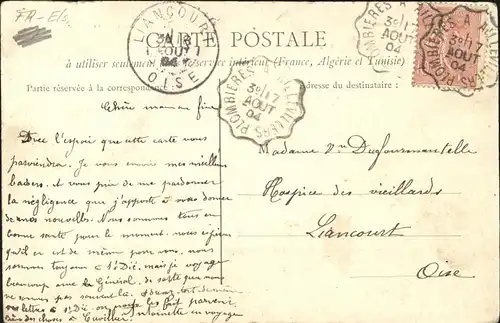 FR-E/s
LIANCOURT
AOUT
04
OISE
CARTE POSTALE
à utiliser seulement dans le service intérieur (France, Algérie et Tunisie)
Partie réservée à la correspondance
Adresse du destinataire :
PLOMBIÈRES A AILLEVILLERS
3e/17
AOUT
04
PLOMBIÈRES A AILLEVILLERS
3e/17
AOUT
04
Chère maman
Avec l'espoir que cette carte vous
parviendra. Je vous envoie mes meilleurs
baisers et vous prie de me pardonner
la négligence que j'apporte à vous donner
de nos nouvelles. Nous sommes tous en
bonne santé pour le moment. nous espérons
qu'il en est de même pour vous. nous
sommes toujours à St Dié. mais je voyage
beaucoup avec le Général. de sorte que nous
ne venons pas souvent là.
vos lettres à St Dié on nous les fait parvenir
bien des choses à Antoinette en voyage
Madame Vve Dufourmantelle
Hospice des vieillards
Liancourt
Oise